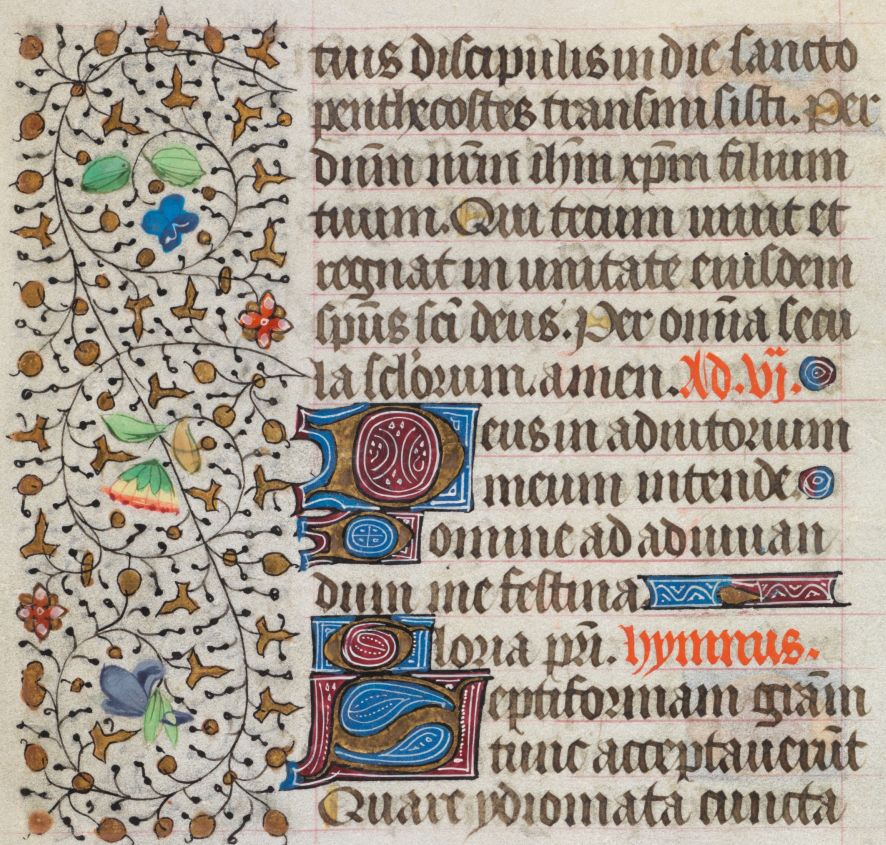 tuis discipulis in die sancto
penthecostes transmisisti. Per
dn̄m nr̄m ih̄m xp̄m filium
tuum. Qui tecum uiuit et
regnat in unitate eiusdem
sp̄us sc̄i deus. Per om̄ia secu
la sc̄lorum. amen. Ad. vj.
Deus in adiutorium
meum intende.
Domine ad adiuuan
dum me festina
Gloria pr̄i. hymnus.
Septiformam grām
tunc acceptauerūt
Quare ydiomata cuncta